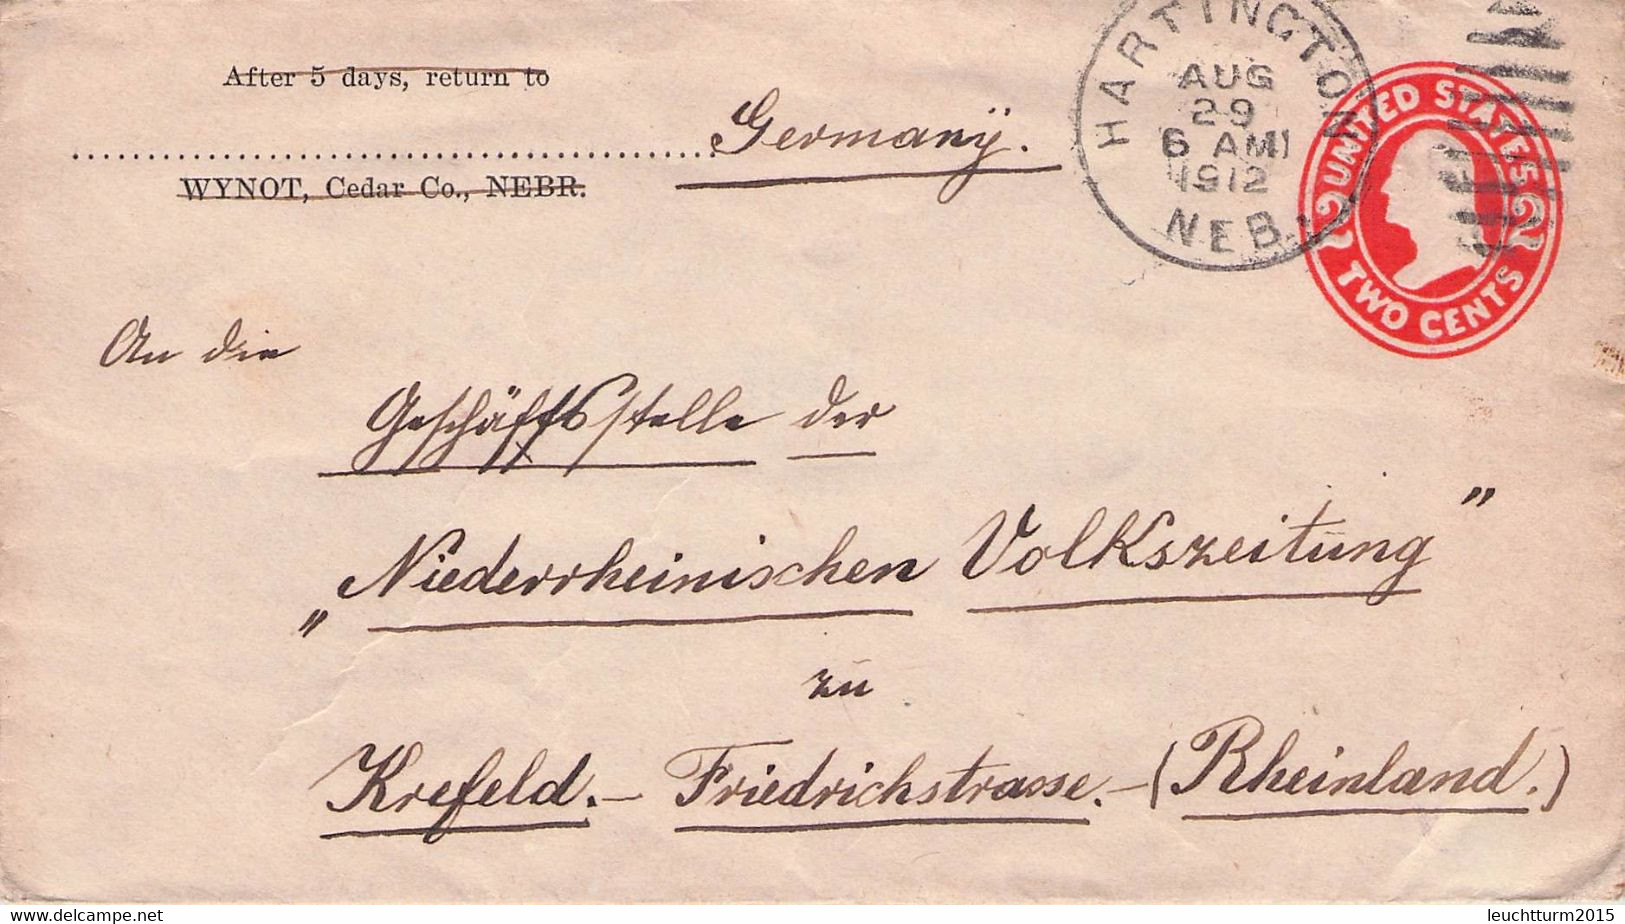 After 5 days, return to
Germanÿ.
WYNOT, Cedar Co., NEBR.
HARTINGTON
AUG
29
6 AM
1912
NEB.
UNITED STATES
2 2
TWO CENTS
An die
Geschäftsstelle der
„Niederrheinischen Volkszeitung"
zu
Krefeld.- Friedrichstrasse.-(Rheinland.)
leuchtturm2015
www.delcampe.net